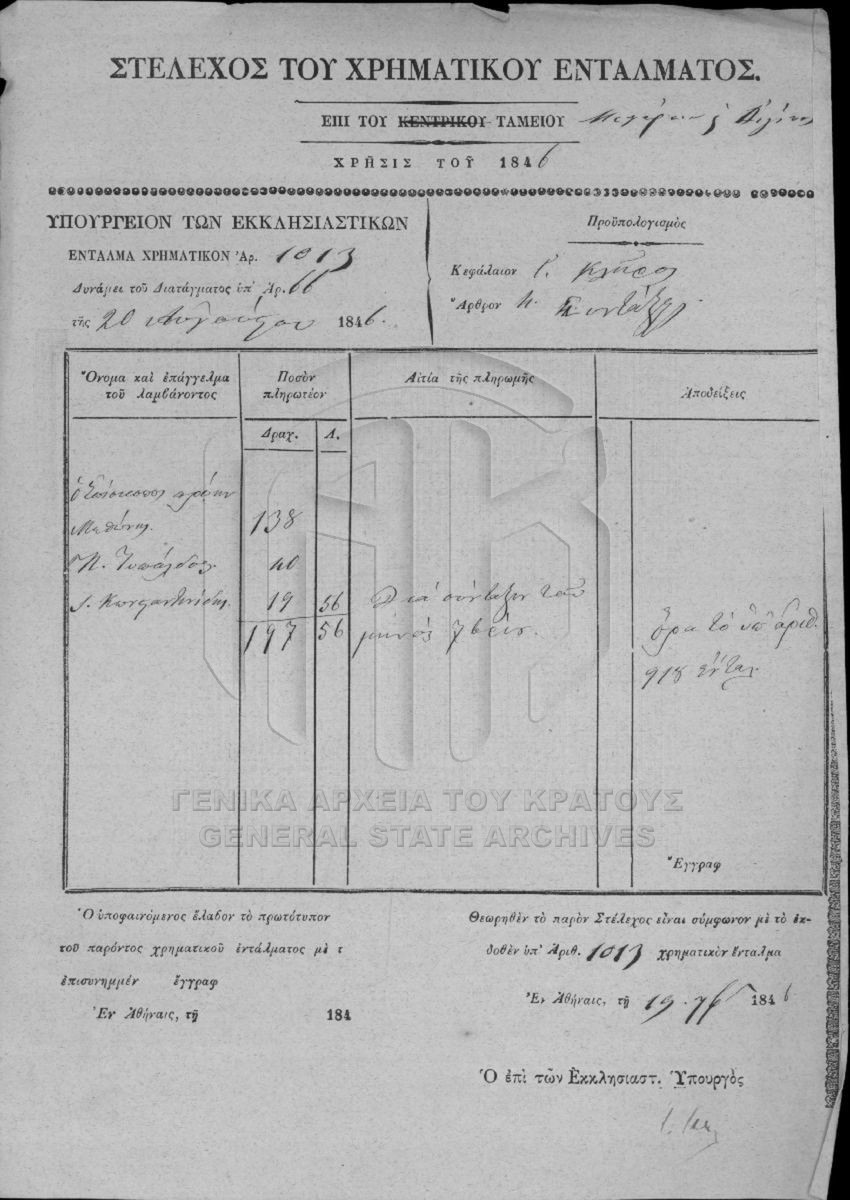 ΣΤΕΛΕΧΟΣ ΤΟΥ ΧΡΗΜΑΤΙΚΟΥ ΕΝΤΑΛΜΑΤΟΣ.
ΕΠΙ ΤΟΥ ΚΕΝΤΡΙΚΟΥ ΤΑΜΕΙΟΥ
ΧΡΗΣΙΣ ΤΟΥ 1846
ΥΠΟΥΡΓΕΙΟΝ ΤΩΝ ΕΚΚΛΗΣΙΑΣΤΙΚΩΝ
ΕΝΤΑΛΜΑ ΧΡΗΜΑΤΙΚΟΝ Ἀρ. 1013
Δυνάμει τοῦ Διατάγματος ὑπ' Ἀρ.
τῆς 20 Αὐγούστου 1846.
Προϋπολογισμὸς
Κεφάλαιον Γ. Κλῆρος
Ἄρθρον
Ὄνομα καὶ ἐπάγγελμα
τοῦ λαμβάνοντος
Ποσὸν
πληρωτέον
Αἰτία τῆς πληρωμῆς
Ἀποδείξεις
Δραχ. Λ.
ὁ Ἐπίσκοπος πρώην
Μεθώνης. 138
Τυπάλδος 40
Κωνσταντινίδης. 19 56 Διά σύνταξιν τοῦ
197 56 μηνός 7βρίου. ὅρα τό ὑπ' ἀριθ.
918 ἔνταλ
ΓΕΝΙΚΑ ΑΡΧΕΙΑ ΤΟΥ ΚΡΑΤΟΥΣ
GENERAL STATE ARCHIVES
Ἔγγραφ
Ὁ ὑποφαινόμενος ἔλαβον τὸ πρωτότυπον
τοῦ παρόντος χρηματικοῦ ἐντάλματος μὲ τ
ἐπισυνημμέν ἔγγραφ
Ἐν Ἀθήναις, τῇ 184
Θεωρηθὲν τὸ παρὸν Στέλεχος εἶναι σύμφωνον μὲ τὸ ἐκ-
δοθὲν ὑπ' Ἀριθ. 1013 χρηματικὸν ἔνταλμα
Ἐν Ἀθήναις, τῇ 19 7β 1846
Ὁ ἐπὶ τῶν Ἐκκλησιαστ. Ὑπουργὸς